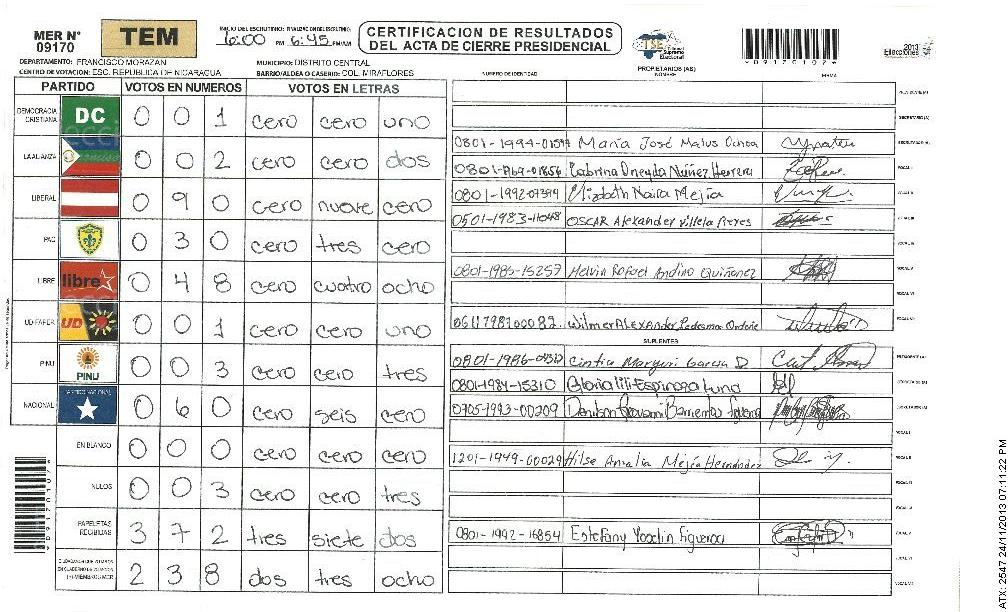 MER N° 09170
TEM
INICIO DEL ESCRUTINIO: FINALIZACION DEL ESCRUTINIO:
6:00 PM 6:45 PM/AM
CERTIFICACION DE RESULTADOS
DEL ACTA DE CIERRE PRESIDENCIAL
TSE Tribunal Supremo Electoral
2013 Elecciones
DEPARTAMENTO: FRANCISCO MORAZAN
MUNICIPIO: DISTRITO CENTRAL
CENTRO DE VOTACION: ESC. REPUBLICA DE NICARAGUA
BARRIO/ALDEA O CASERIO: COL. MIRAFLORES
NUMERO DE IDENTIDAD
PROPIETARIOS (AS)
NOMBRE
FIRMA
PARTIDO VOTOS EN NUMEROS VOTOS EN LETRAS
DEMOCRACIA CRISTIANA DC 0 0 1 cero cero uno
LA ALIANZA 0 0 2 cero cero dos
LIBERAL 0 9 0 cero nueve cero
PAC 0 3 0 cero tres cero
LIBRE libre 0 4 8 cero cuatro ocho
UD-FAPER UD 0 0 1 cero cero uno
PINU PINU 0 0 3 cero cero tres
NACIONAL 0 6 0 cero seis cero
EN BLANCO 0 0 0 cero cero cero
NULOS 0 0 3 cero cero tres
PAPELETAS RECIBIDAS 3 7 2 tres siete dos
2 3 8 dos tres ocho
María José Matus Ochoa
Núñez Herrera
0801-1992-07394 Elizabeth Naira Mejía
0501-1983-11048 OSCAR Alexander Villela
0801-1985-15257 Melvin Rafael Andino Quiñonez
Wilmer ALEXANder Ledesma
SUPLENTES
Cintia García D
0801-1984-15310 Gloria lili Espinoza Luna
0705-1993-00209
1201-1949-00029 Hilse Amalia Mejía Hernández
0801-1992-16854 Estefany Figueroa
ATX: 2547 24/11/2013 07:11:22 PM